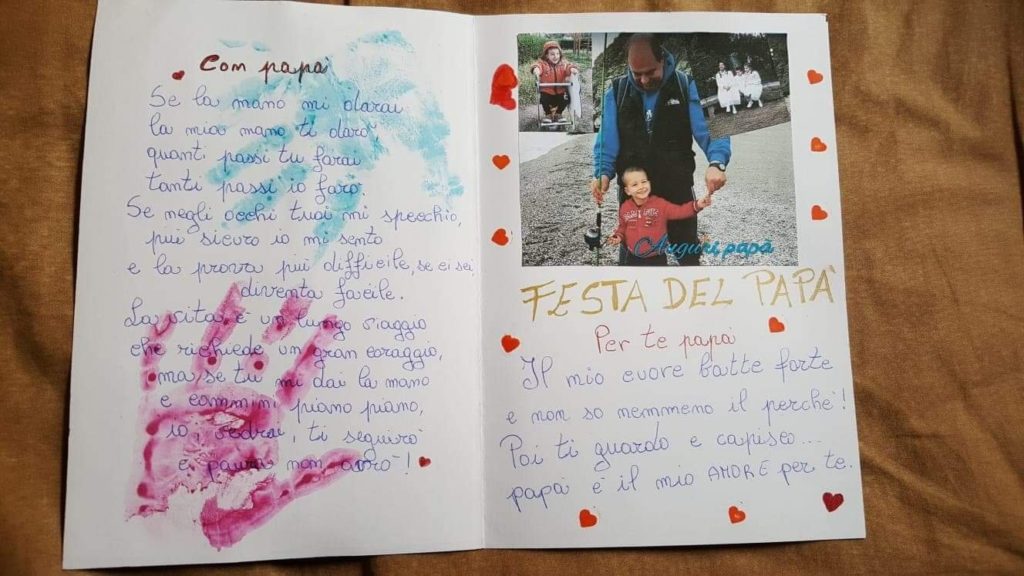 Com papà
Se la mano mi darai
la mia mano ti darò
quanti passi tu farai
tanti passi io farò.
Se negli occhi tuoi mi specchio,
più sicuro io mi sento
e la prova più difficile, se ci sei,
diventa facile.
La vita è un lungo viaggio
che richiede un gran coraggio,
ma se tu mi dai la mano
e cammini piano piano,
io, vedrai, ti seguirò
e paura non avrò!
Auguri papà
FESTA DEL PAPÀ
Per te papà
Il mio cuore batte forte
e non so nemmeno il perché!
Poi ti guardo e capisco...
papà è il mio AMORE per te.